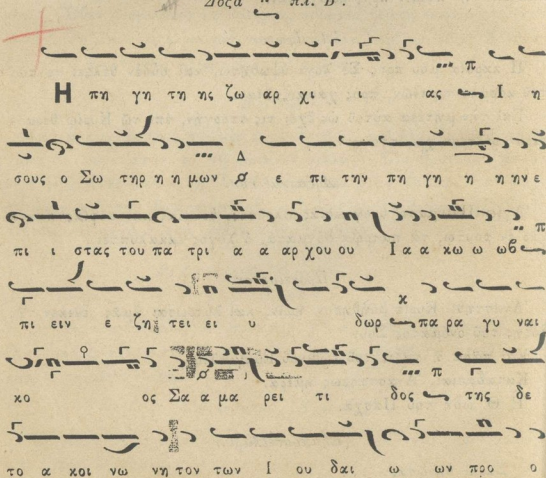 Δοξα πλ. Β΄.
Η πη γη τη ης ζω αρ χι ι ας π Ι η
σους ο Σω τηρ η η μων Δ ε πι την πη γη η η ην ε
πι ι στας του πα τρι α α αρ χου ου Ι α α κω ω ωβ π
πι ειν ε ζη τει ει υ δωρ κ πα ρα γυ ναι
κο ος Σα α μα ρει τι δος π της δε
το α κοι νω νη τον των Ι ου δαι ω ων προ ο